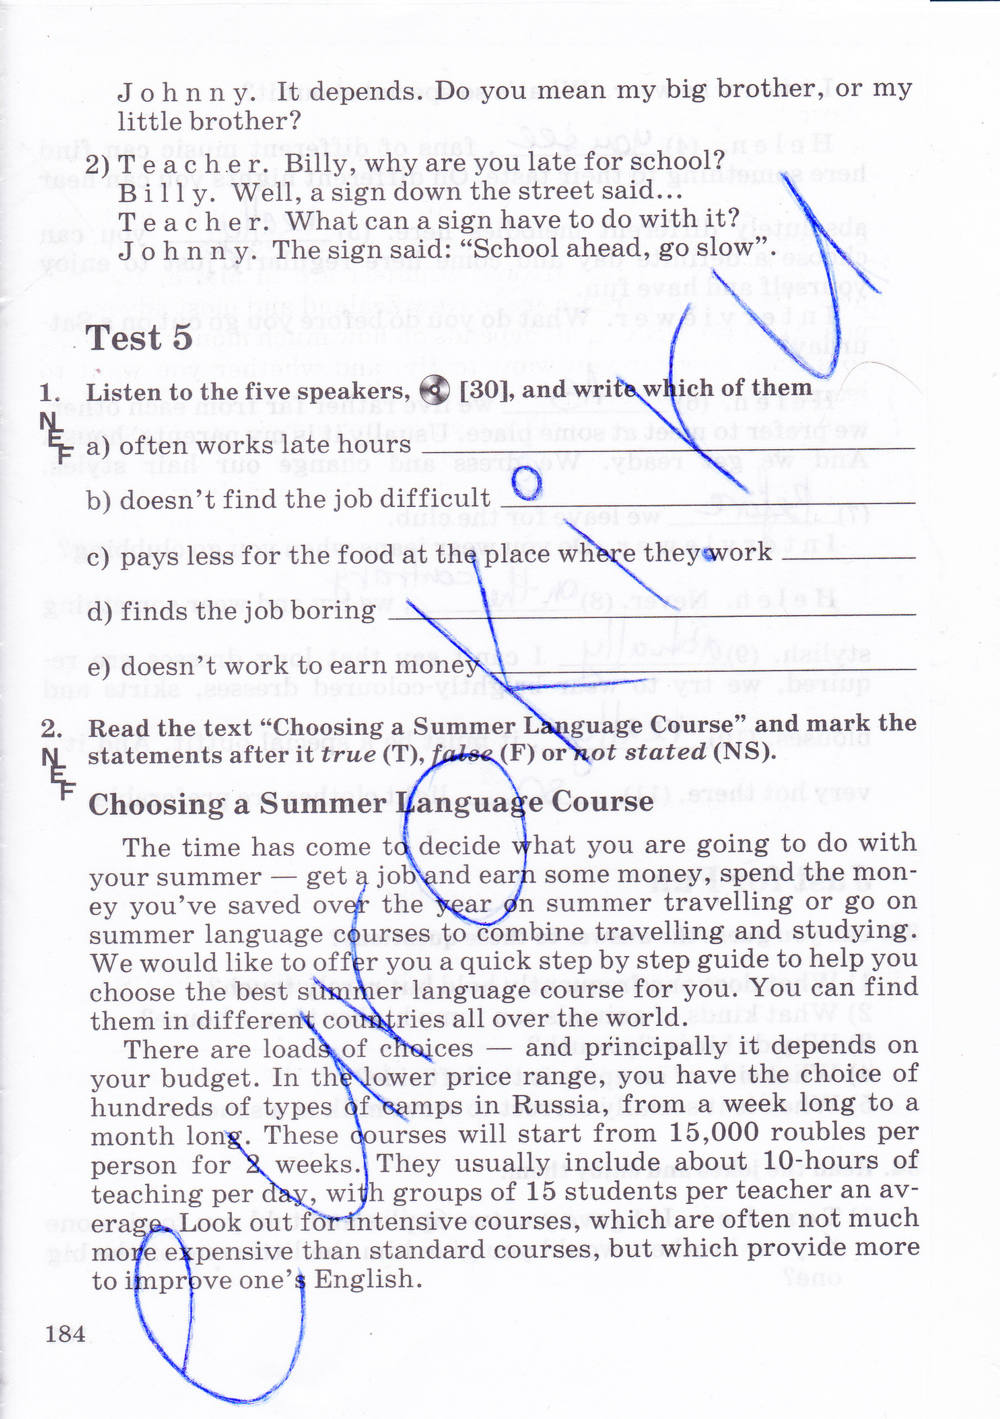 Johnny. It depends. Do you mean my big brother, or my
little brother?
2) Teacher. Billy, why are you late for school?
Billy. Well, a sign down the street said...
Teacher. What can a sign have to do with it?
Johnny. The sign said: “School ahead, go slow”.
Test 5
1. Listen to the five speakers, [30], and write which of them
NEF
a) often works late hours
b) doesn’t find the job difficult
c) pays less for the food at the place where they work
d) finds the job boring
e) doesn’t work to earn money
2. Read the text “Choosing a Summer Language Course” and mark the
NEF
statements after it true (T), false (F) or not stated (NS).
Choosing a Summer Language Course
The time has come to decide what you are going to do with
your summer — get a job and earn some money, spend the mon-
ey you’ve saved over the year on summer travelling or go on
summer language courses to combine travelling and studying.
We would like to offer you a quick step by step guide to help you
choose the best summer language course for you. You can find
them in different countries all over the world.
There are loads of choices — and principally it depends on
your budget. In the lower price range, you have the choice of
hundreds of types of camps in Russia, from a week long to a
month long. These courses will start from 15,000 roubles per
person for 2 weeks. They usually include about 10-hours of
teaching per day, with groups of 15 students per teacher an av-
erage. Look out for intensive courses, which are often not much
more expensive than standard courses, but which provide more
to improve one’s English.
184